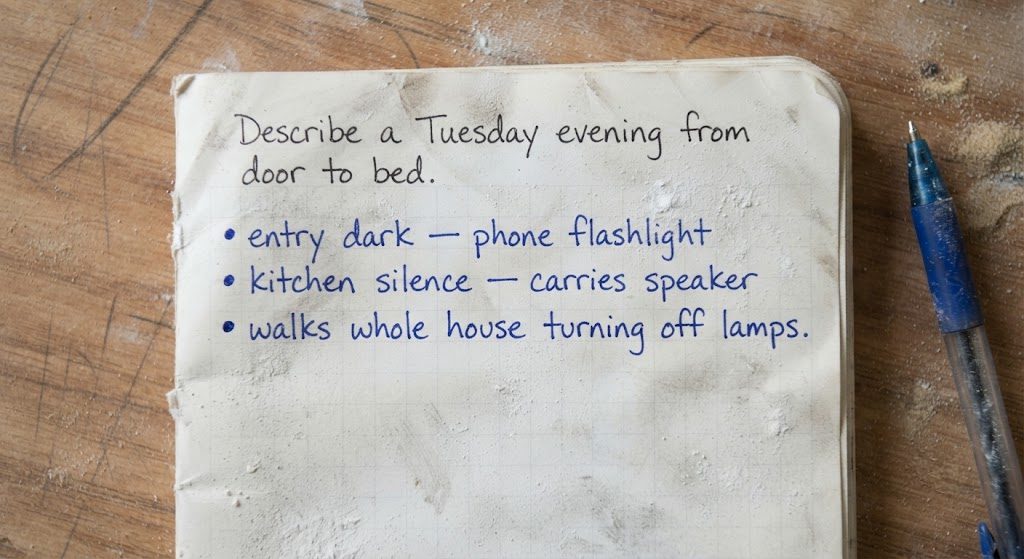 Describe a Tuesday evening from
door to bed.
• entry dark — phone flashlight
• kitchen silence — carries speaker
• walks whole house turning off lamps.